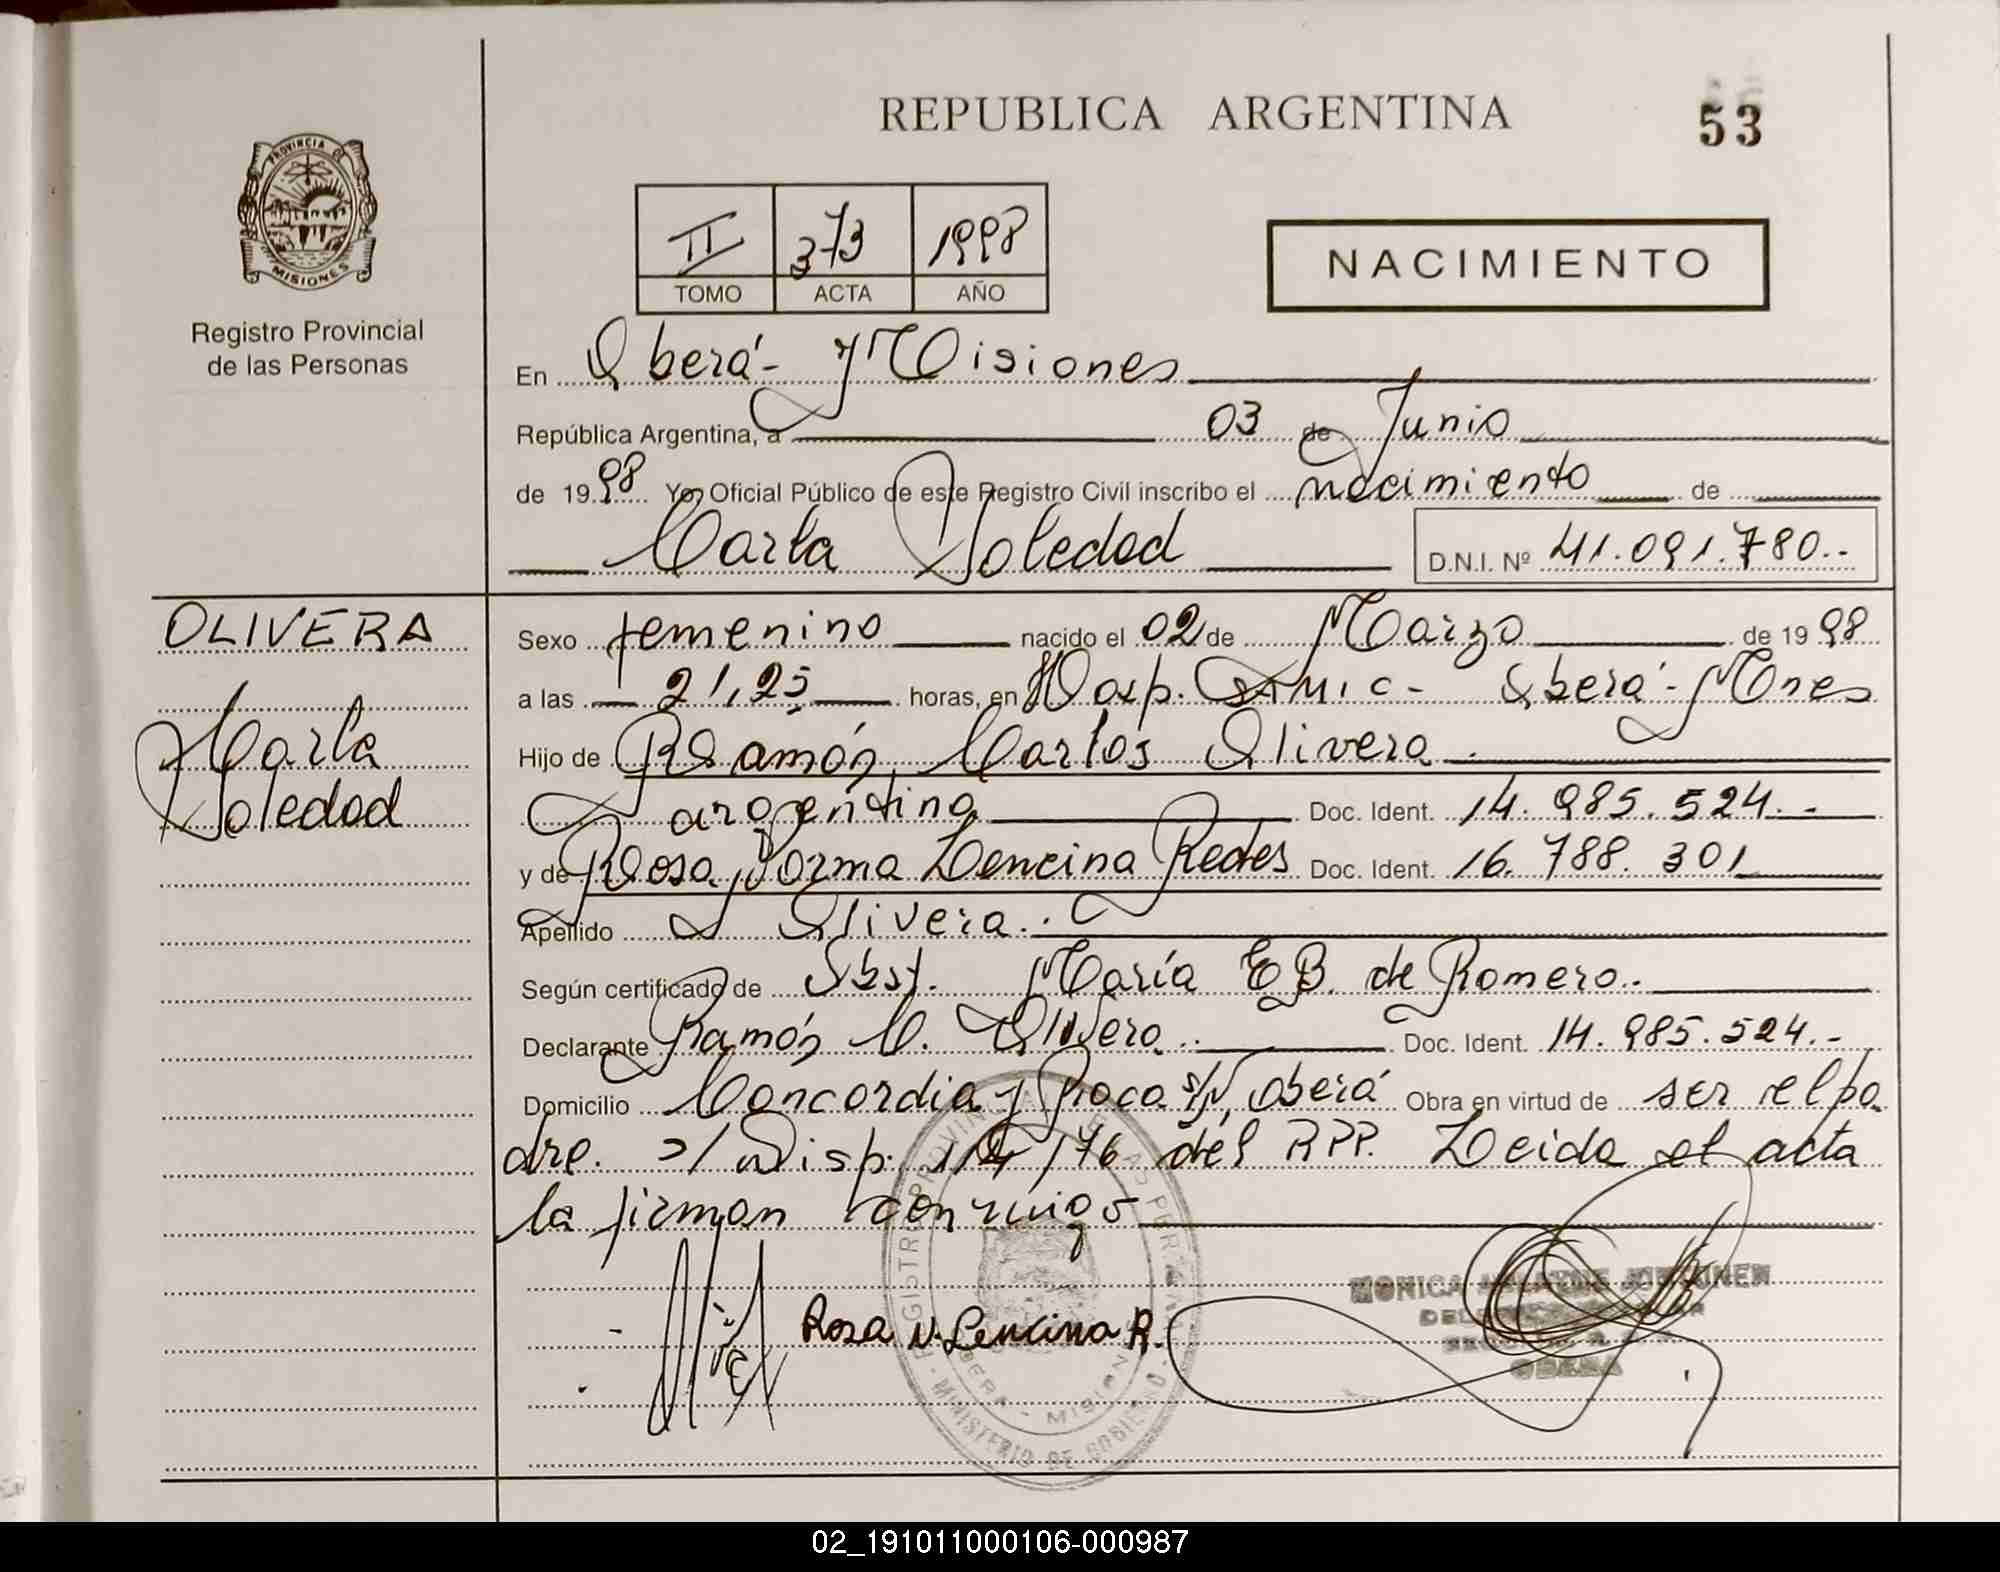 REPUBLICA ARGENTINA
53
PROVINCIA DE
MISIONES
Registro Provincial
de las Personas
II 373 1998
TOMO ACTA AÑO
NACIMIENTO
En Oberá - Misiones
República Argentina, a 03 de Junio
de 1998 Yo, Oficial Público de este Registro Civil inscribo el nacimiento de
Carla Soledad D.N.I. Nº 41.091.780.-
OLIVERA
Carla
Soledad
Sexo femenino nacido el 02 de Marzo de 1998
a las 21,25 horas, en Hosp. SAMIC - Oberá - Mnes
Hijo de Ramón Carlos Olivera.
argentino Doc. Ident. 14.985.524.-
y de Rosa Norma Lencina Redes Doc. Ident. 16.788.301
Apellido Olivera.
Según certificado de Obst. María E B. de Romero.
Declarante Ramón C. Olivera. Doc. Ident. 14.985.524.-
Domicilio Concordia y Roca s/N, Oberá Obra en virtud de ser el pa
dre. s/ Disp. /76 del RPP. Leida el acta
la firman conmigo
Rosa N. Lencina R.
MONICA
OBERA
REGISTRO PROVINCIAL DE LAS PERSONAS
OBERA - MISIONES
MINISTERIO DE GOBIERNO
02_191011000106-000987